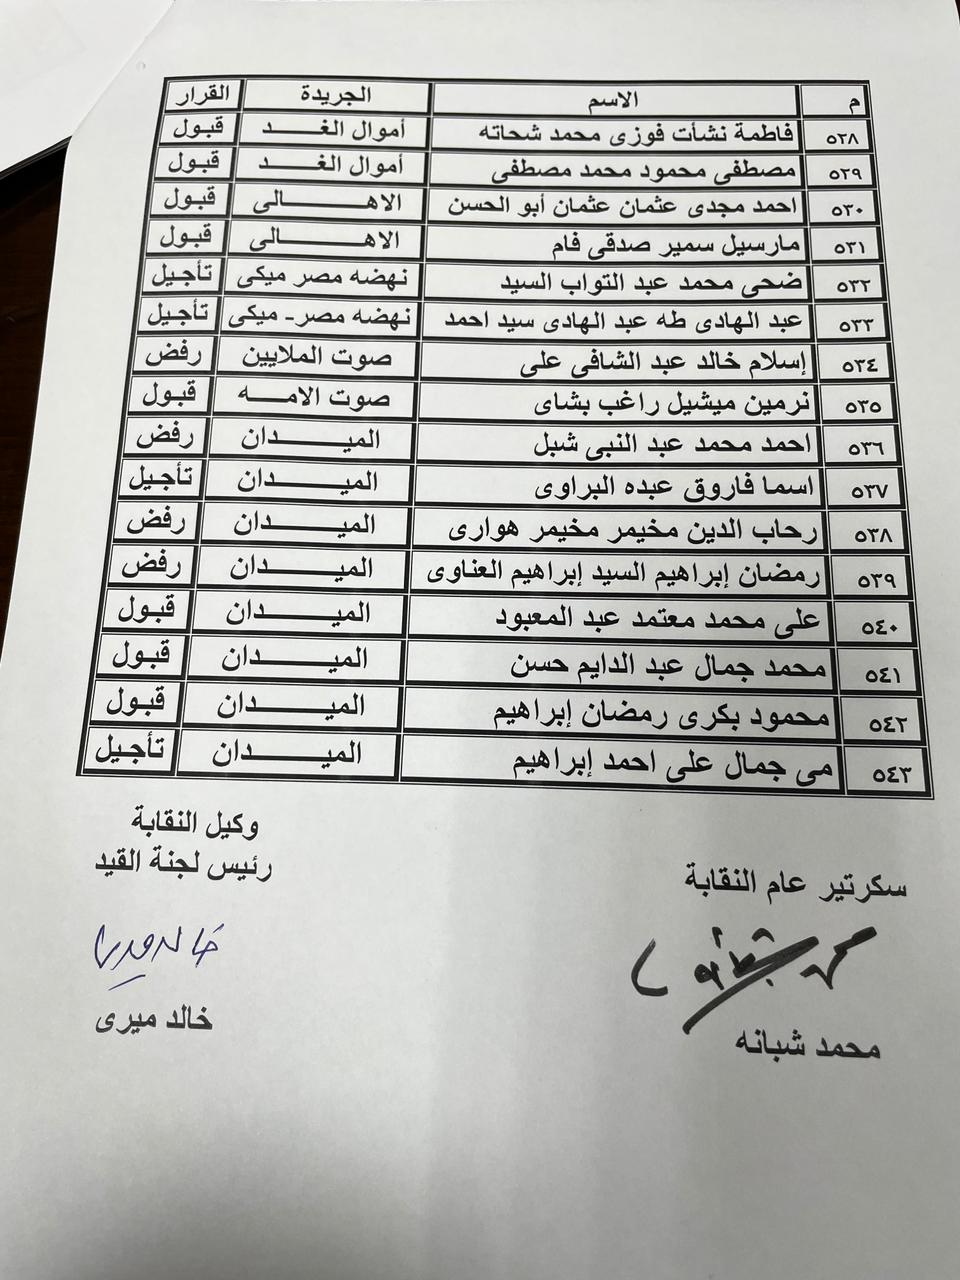 م الاسم الجريدة القرار
٥٢٨ فاطمة نشأت فوزى محمد شحاته أموال الغـــد قبول
٥٢٩ مصطفى محمود محمد مصطفى أموال الغـــد قبول
٥٣٠ احمد مجدى عثمان عثمان أبو الحسن الاهـــــــالى قبول
٥٣١ مارسيل سمير صدقى فام الاهـــــــالى قبول
٥٣٢ ضحى محمد عبد التواب السيد نهضه مصر ميكى تأجيل
٥٣٣ عبد الهادى طه عبد الهادى سيد احمد نهضه مصر- ميكى تأجيل
٥٣٤ إسلام خالد عبد الشافى على صوت الملايين رفض
٥٣٥ نرمين ميشيل راغب بشاى صوت الامـــه قبول
٥٣٦ احمد محمد عبد النبى شبل الميـــــــدان رفض
٥٣٧ اسما فاروق عبده البراوى الميـــــــدان تأجيل
٥٣٨ رحاب الدين مخيمر مخيمر هوارى الميـــــــدان رفض
٥٣٩ رمضان إبراهيم السيد إبراهيم العناوى الميـــــــدان رفض
٥٤٠ على محمد معتمد عبد المعبود الميـــــــدان قبول
٥٤١ محمد جمال عبد الدايم حسن الميـــــــدان قبول
٥٤٢ محمود بكرى رمضان إبراهيم الميـــــــدان قبول
٥٤٣ مى جمال على احمد إبراهيم الميـــــــدان تأجيل
وكيل النقابة
رئيس لجنة القيد
سكرتير عام النقابة
خالد ميرى
محمد شبانه